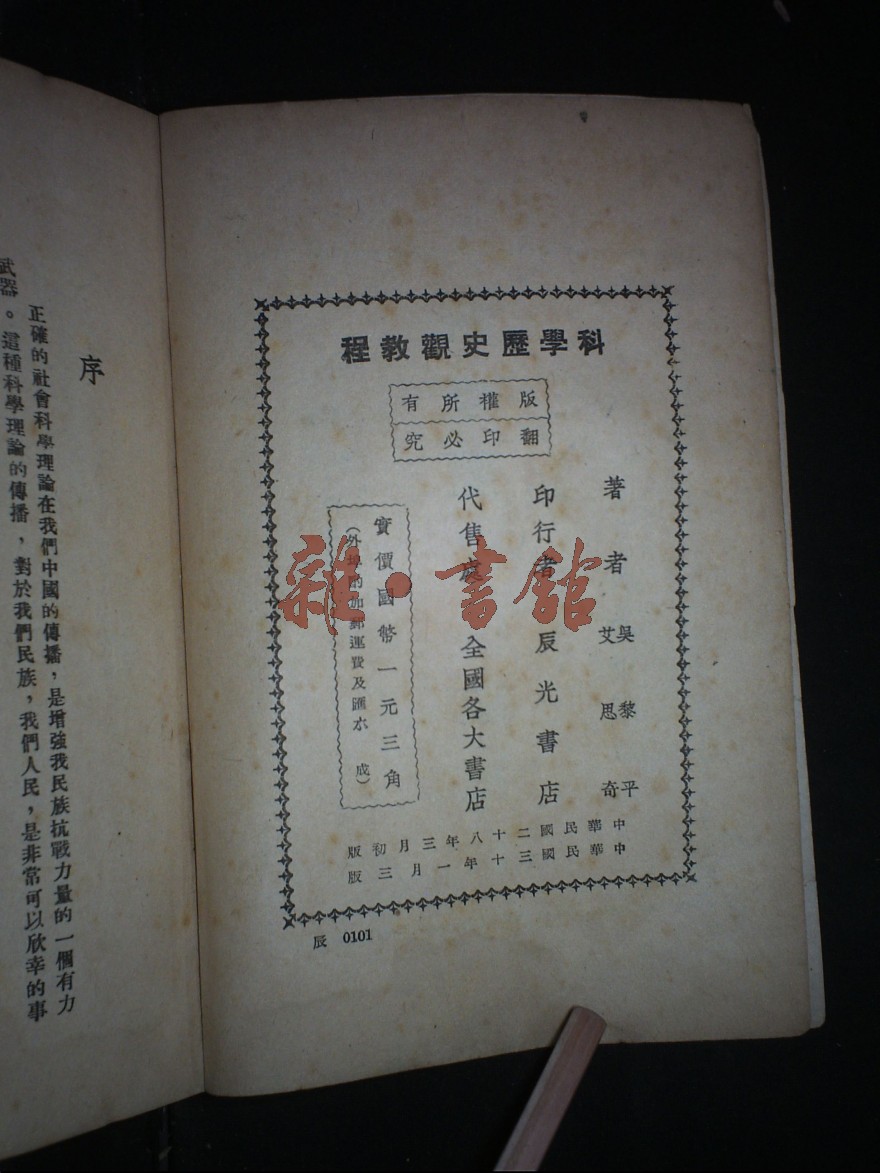 科學歷史觀教程
版權所有
翻印必究
著者 吳黎平
艾思奇
印行者 辰光書店
代售處 全國各大書店
實價國幣一元三角
(外埠酌加郵運費及匯水 成)
中華民國二十八年三月初版
中華民國三十年一月三版
辰 0101
雜·書館
序
正確的社會科學理論在我們中國的傳播,是增強我民族抗戰力量的一個有力
武器。這種科學理論的傳播,對於我們民族,我們人民,是非常可以欣幸的事